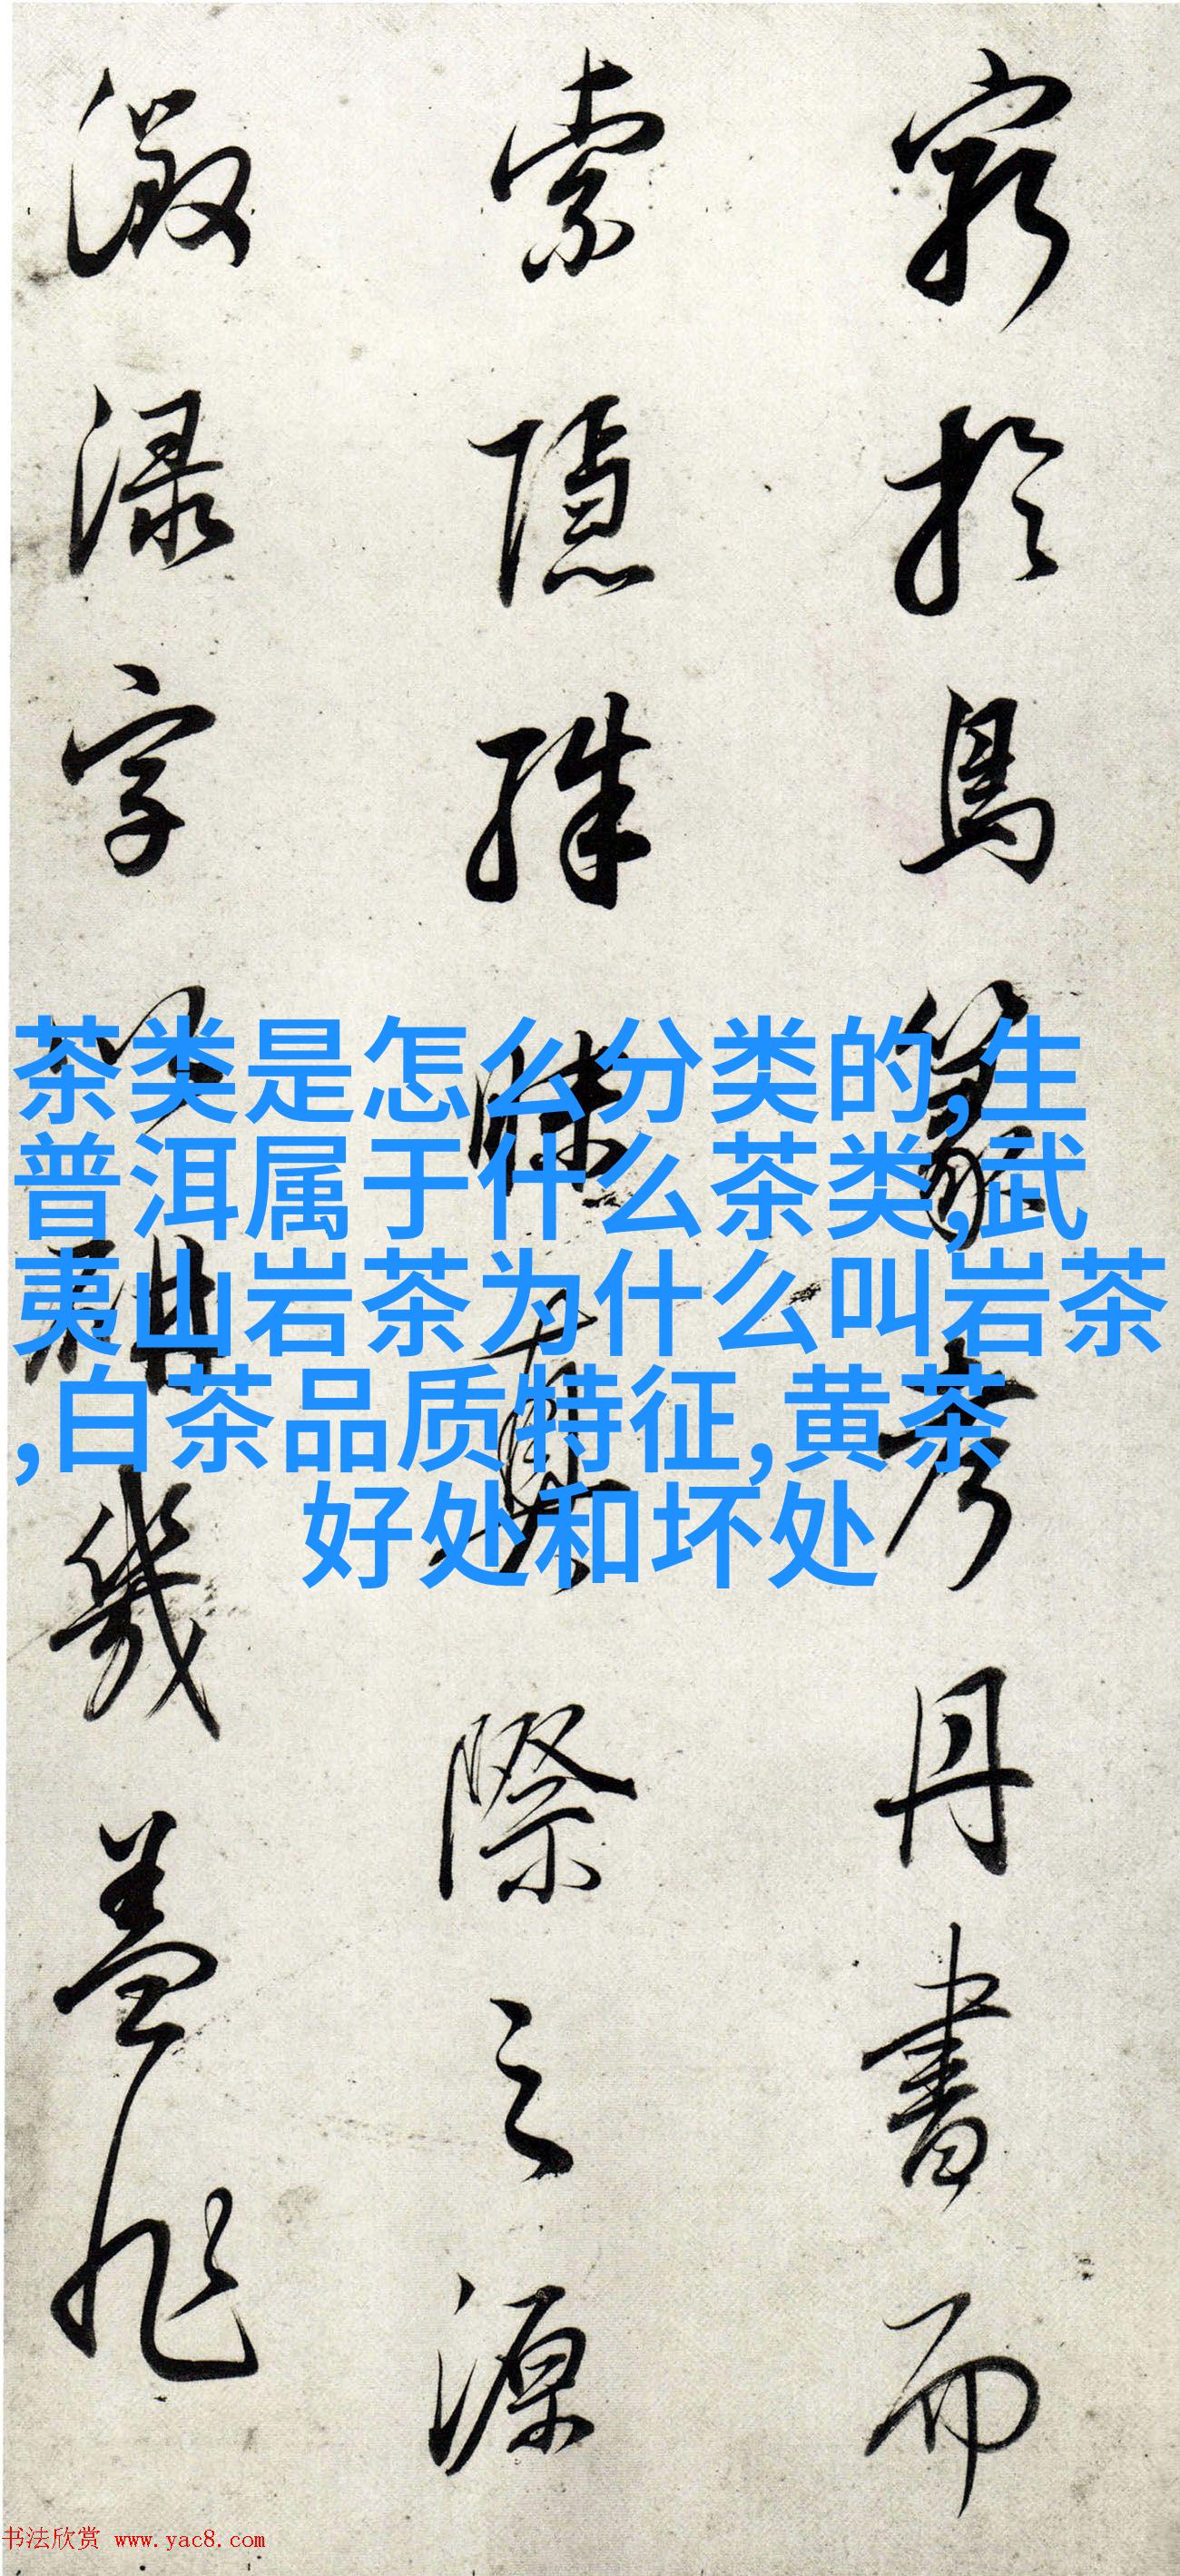 窮於鳥篆考丹書而
索隱殊昧真際之源
激濠字
幾蓋非
茶类是怎么分类的,生
普洱属于什么茶类,武
夷山岩茶为什么叫岩茶
,白茶品质特征,黄茶
好处和坏处
书法欣赏 www.yac8.com